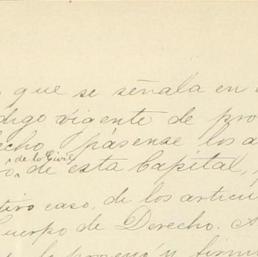 que se señala en
digo vigente de pro
echo, pásense los a
de lo Civil
de esta Capital,
tivo caso, de los artícu
Cuerpo de Derecho. A